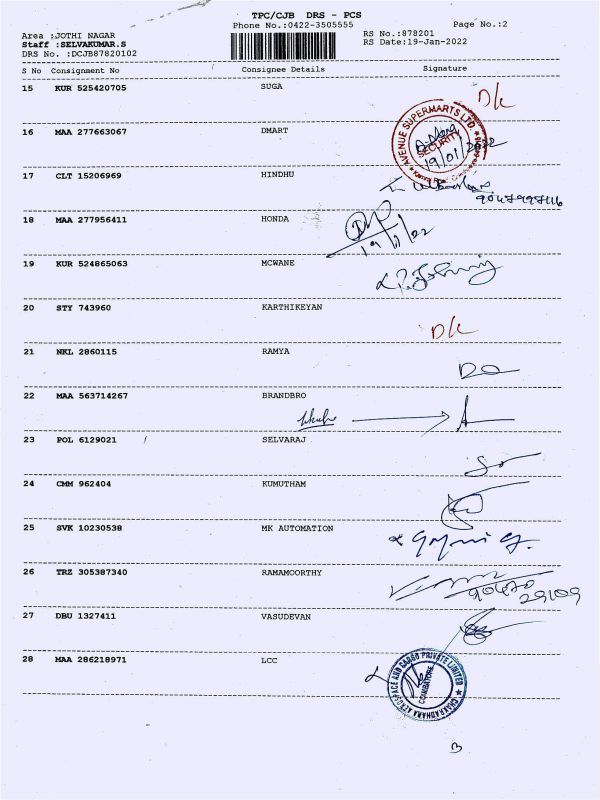 TPC/CJB DRS - PCS
Phone No.:0422-3505555
Page No.:2
Area :JOTHI NAGAR
RS No.:878201
Staff :SELVAKUMAR.S
RS Date:19-Jan-2022
DRS No. :DCJB87820102
S No Consignment No Consignee Details Signature
15 KUR 525420705 SUGA
D/L
16 MAA 277663067 DMART
AVENUE SUPERMARTS LTD
SECURITY
19/01/2022
17 CLT 15206969 HINDHU
18 MAA 277956411 HONDA
19 KUR 524865063 MCWANE
20 STY 743960 KARTHIKEYAN
D/L
21 NKL 2860115 RAMYA
22 MAA 563714267 BRANDBRO
23 POL 6129021 SELVARAJ
24 CMM 962404 KUMUTHAM
25 SVK 10230538 MK AUTOMATION
26 TRZ 305387340 RAMAMOORTHY
90470
29109
27 DBU 1327411 VASUDEVAN
28 MAA 286218971 LCC
AEROSPACE AND CARGO PRIVATE LIMITED
COIMBATORE